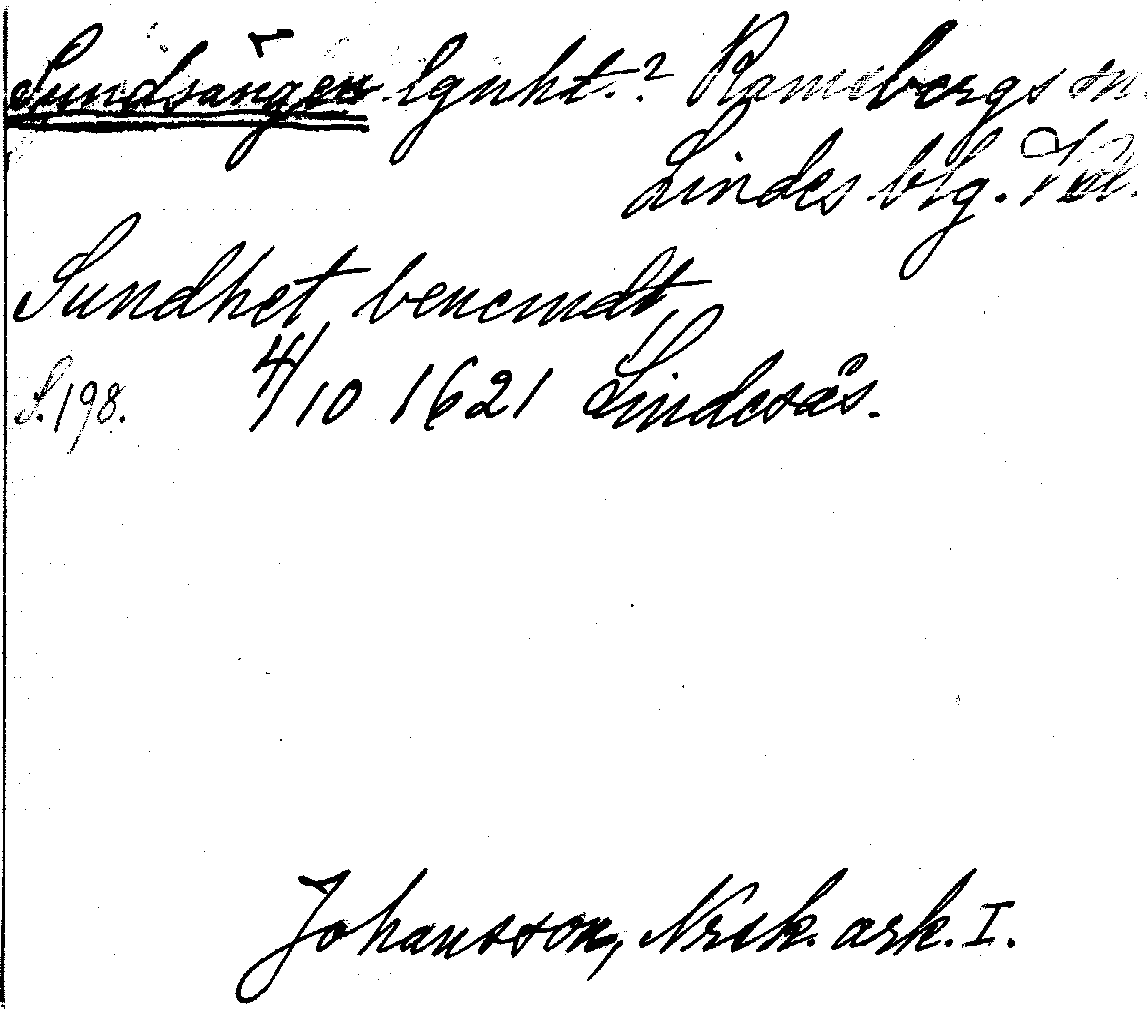 Sundsängen lgnht.? Ramsbergs sn.
Lindes blg. Vstl.
Sundhet benemdt
S. 198. 4/10 1621 Lindesås.
Johansson, Norsk. ark. I.